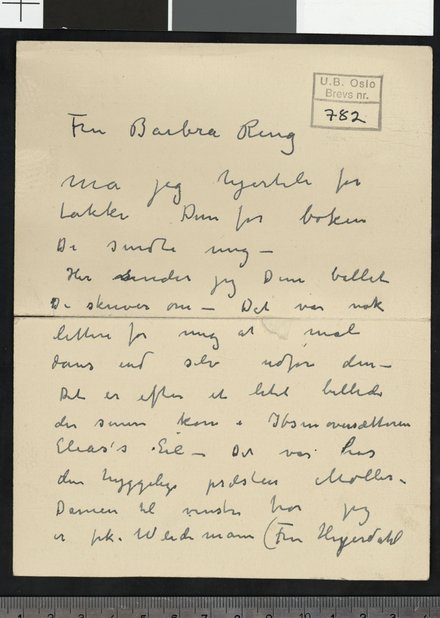 U.B. Oslo
Brevs nr.
782
Fru Barbra Ring
Må jeg hjertelig for
takke Dem for boken
De sendte mig —
Her sender jeg Dem billet
De skriver om — Det var nok
lettere for mig at male
dans end selv udføre den —
Det er efter et litet billede
der senere kom i Ibsenoversætteren
Elias's Eie — Det var hos
den hyggelige præsten Møller —
Damen til venstre for jeg
er frk. Weidemann (Fru Heyerdahl